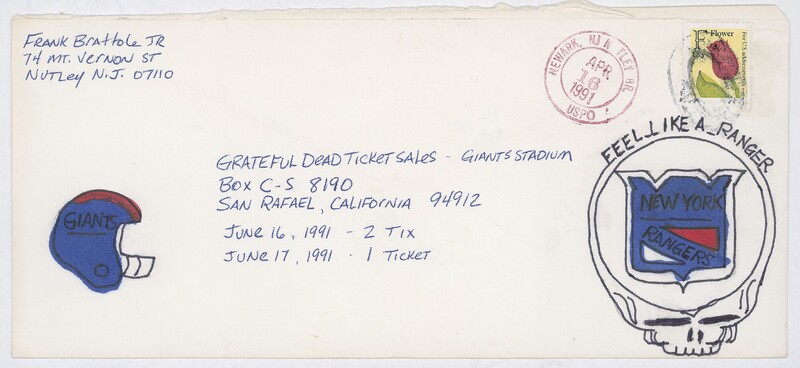 Frank Brattole Jr
74 Mt. Vernon St
Nutley N.J. 07110
NEWARK, NJ N TLEY BR.
APR
16
1991
USPO
F Flower
For U.S. addresses only
FEEL LIKE A RANGER
GRATEFUL DEAD TICKET SALES - GIANTS STADIUM
Box C-S 8190
SAN RAFAEL, CALIFORNIA 94912
JUNE 16, 1991 - 2 TIX
JUNE 17, 1991 - 1 TICKET
GIANTS
NEW YORK
RANGERS